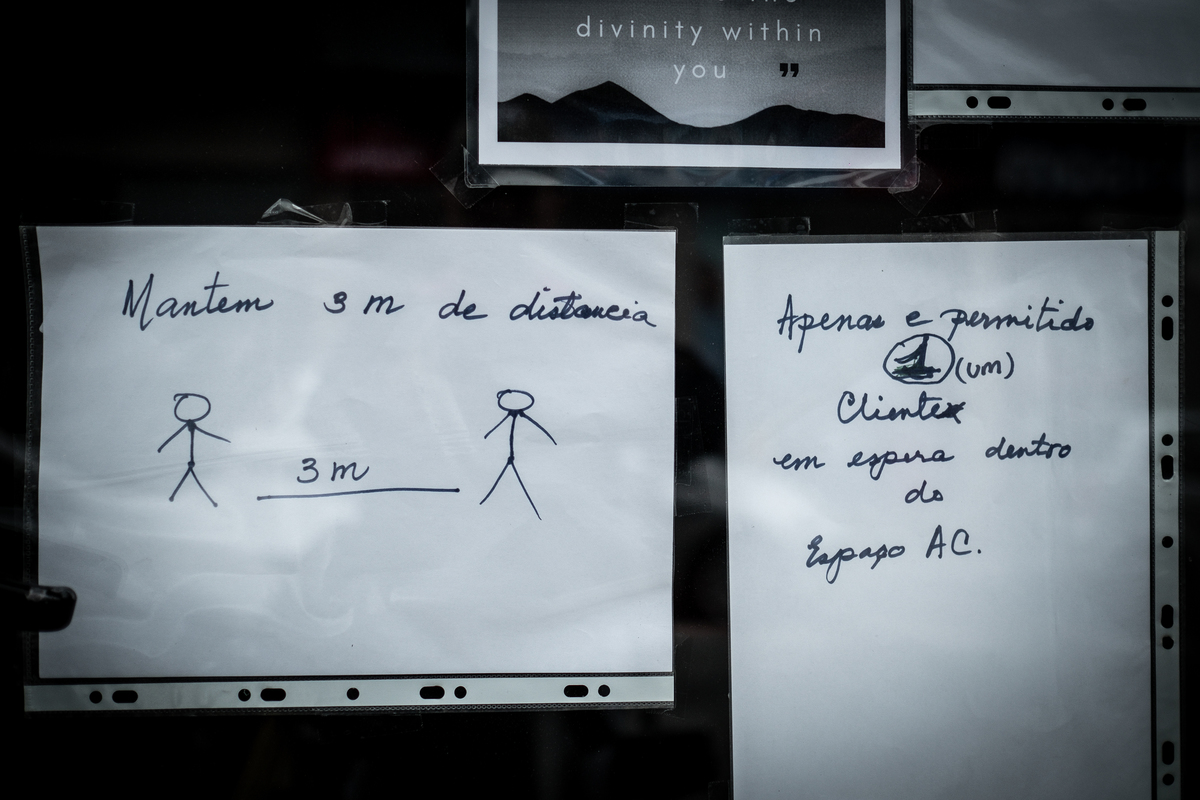 divinity within
you ”
Mantem 3 m de distancia
3 m
Apenas e permitido
1 (um)
Cliente
em espera dentro
do
Espaço AC.